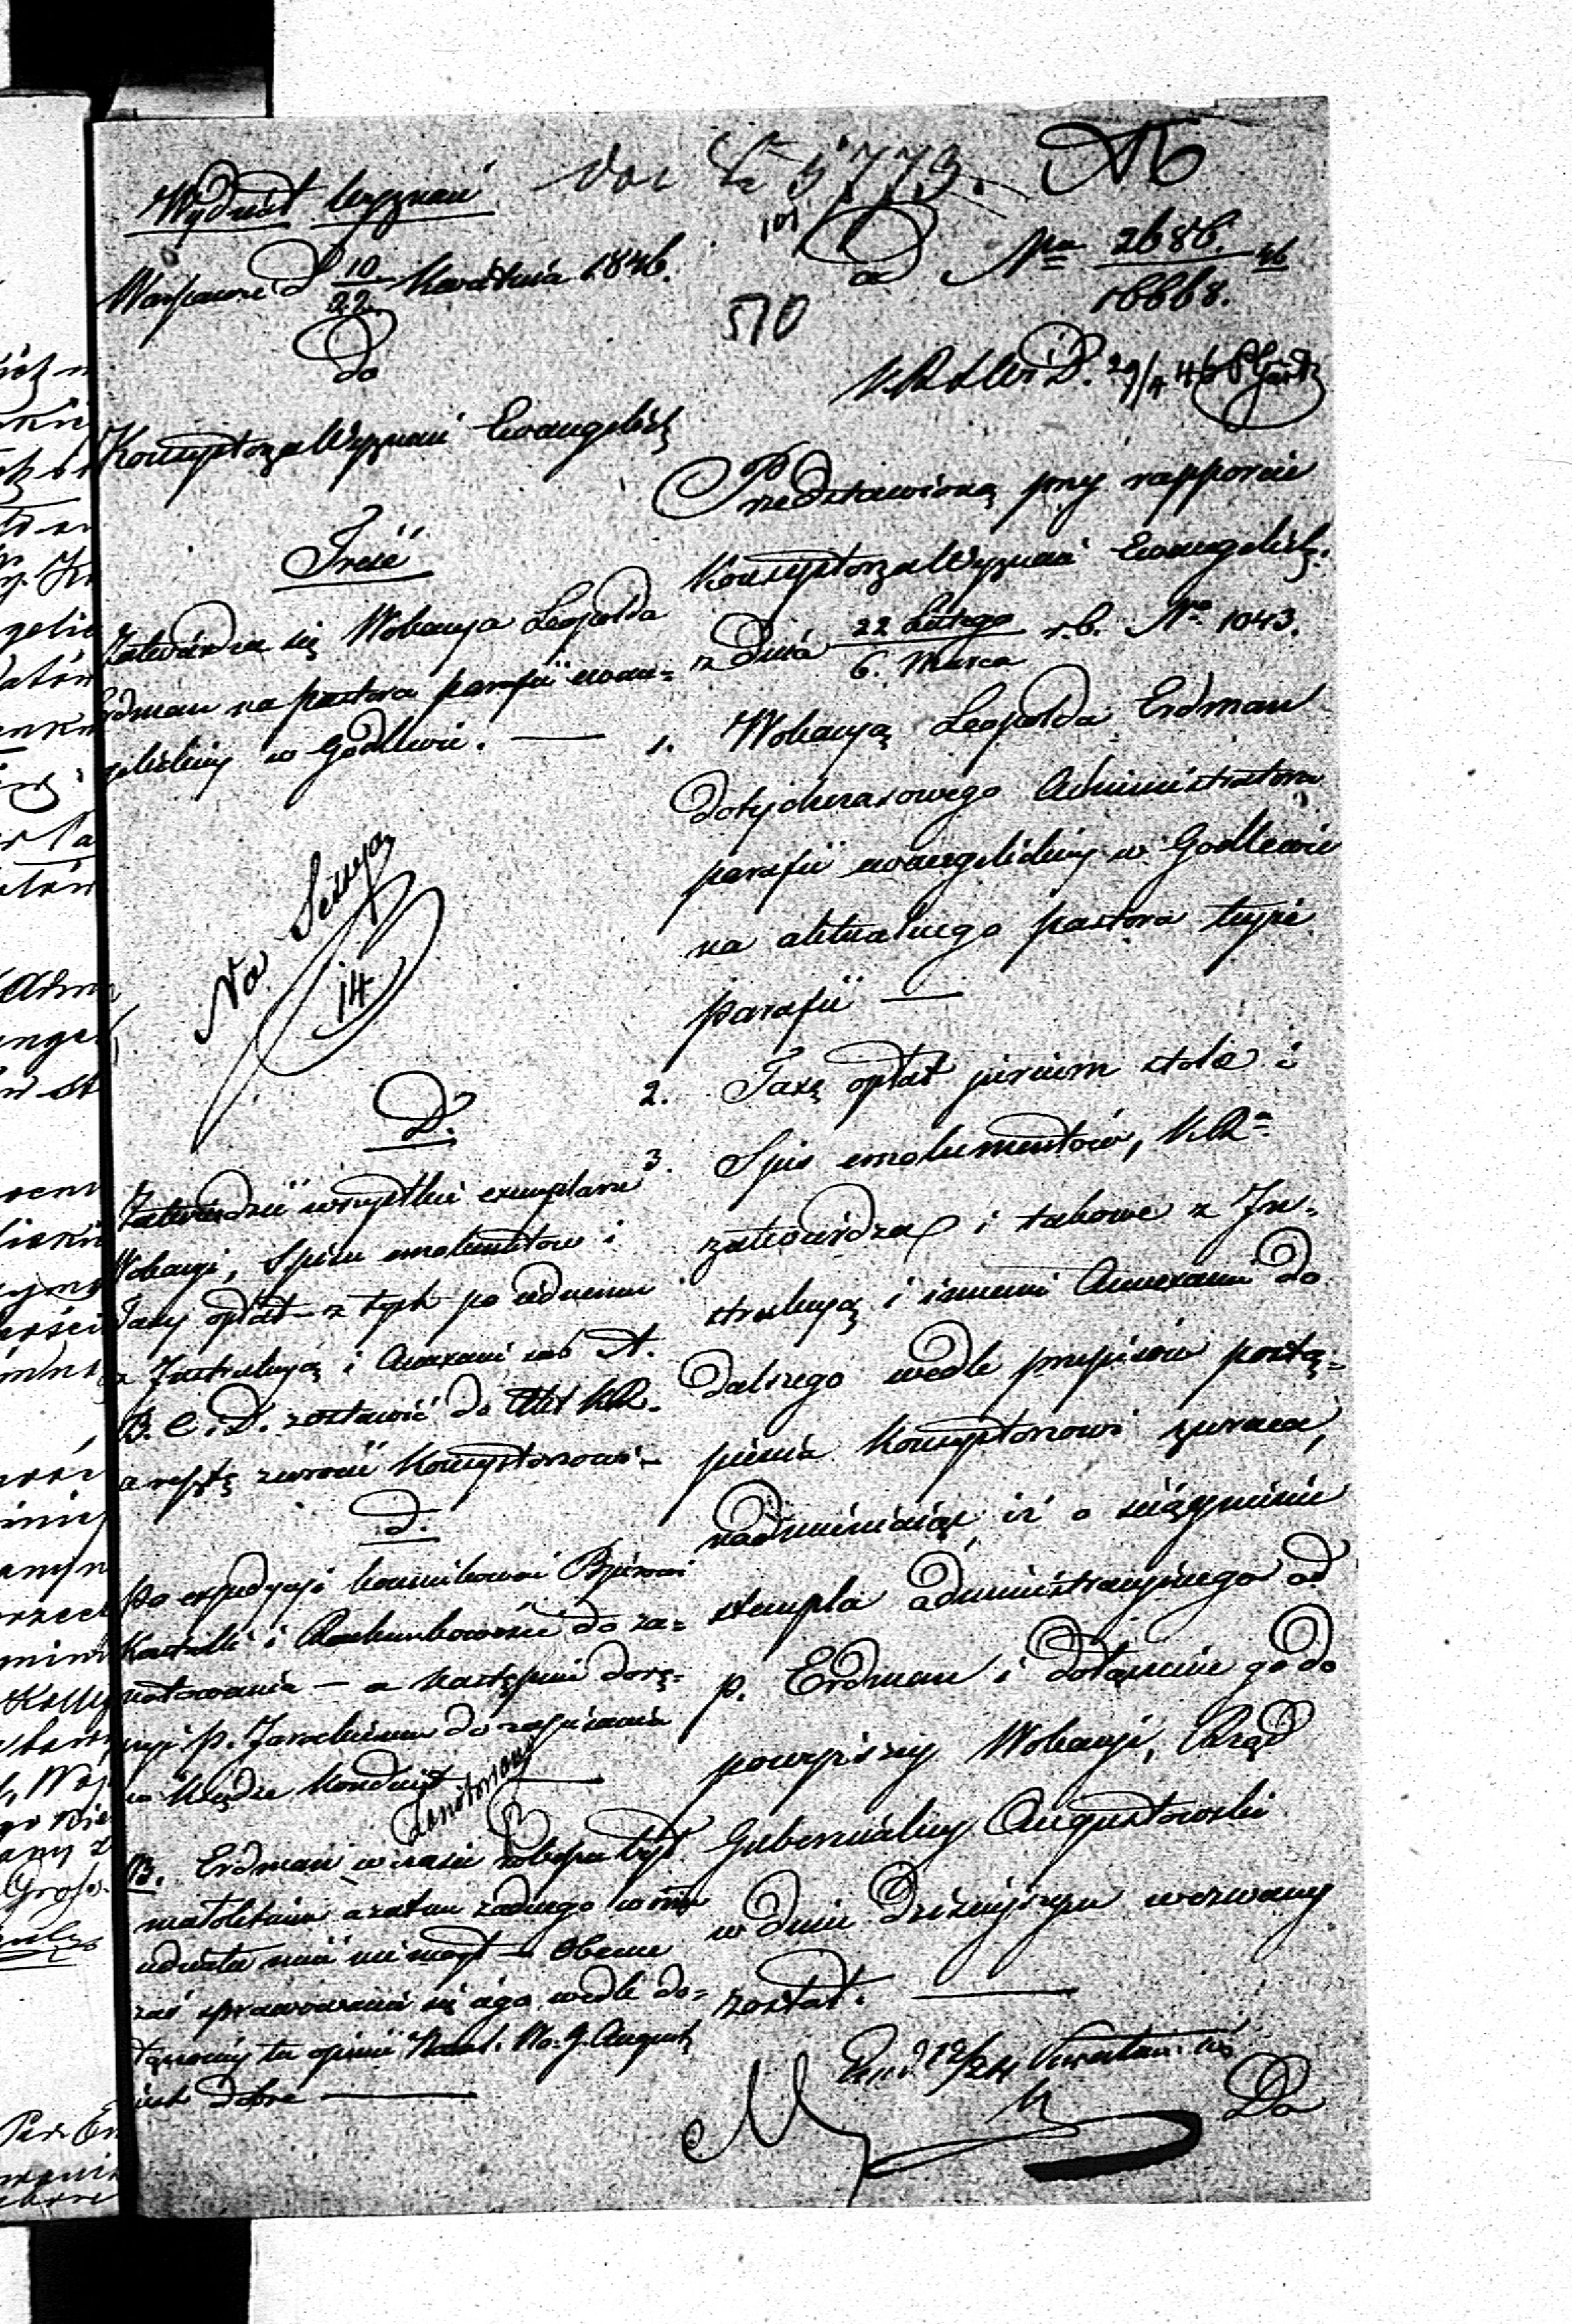 Wydział Wyznań
Warszawa D 10/22 Kwietnia 1846.
do
Konsystorza Wyznań Ewangelick
Treść
Zatwierdza się Wokacya Leopolda
Erdman na pastora parafii ewan=
gelickiej w Godlewie. —
Na Sessyą
14
D.
Zatwierdzić wszystkie exemplarze
Wokacyi, Spisu emolumentów i
Taxy opłat z tych po jednemu
z Instrukcyą i Annexami sub A.
B. C. i D. zostawić do Akt KR.
a resztę zwrócić Konsystorzowi —
d.
Po expedycyi kommunikować
Kontrolli i Rachunkowości do za=
notowania — a następnie dorę=
p. Jarockiemu do zapisania
w księdze Konduit —
B. Erdman w czasie był
małoletnim a zatem żadnego w niem
udziału mieć nie mógł — Obecne
zaś sprawowanie się jego wedle do=
łączonej tu opinii Nacz. Wo. G. August
jest dobre —
5773.
101
ad Nra 2686./16668. 46
570
K.R.S.W. i D. 29/4 46
Przedstawioną przy rapporcie
Konsystorza Wyznań Ewangelick.
z dnia 22 Lutego/6. Marca r.b. Nro 1043.
1. Wokacyą Leopolda Erdman
dotychczasowego Administratora
parafii ewangelickiej w Godlewie
na aktualnego pastora tejże
parafii —
2. Taxę opłat jurium stolae i
3. Spis emolumentów, K.R.
zatwierdza i takowe z In=
strukcyą i innemi Annexami do
dalszego wedle przepisów postą=
pienia Konsystorzowi zwraca,
nadmieniając, iż o ściągnienie
stempla administracyjnego od
p. Erdman i dołączenie go do
powyższej Wokacyi, Rząd
Gubernialny Augustowski
w dniu dzisiejszym wezwany
został. —
12/24 Kwietnia
Do